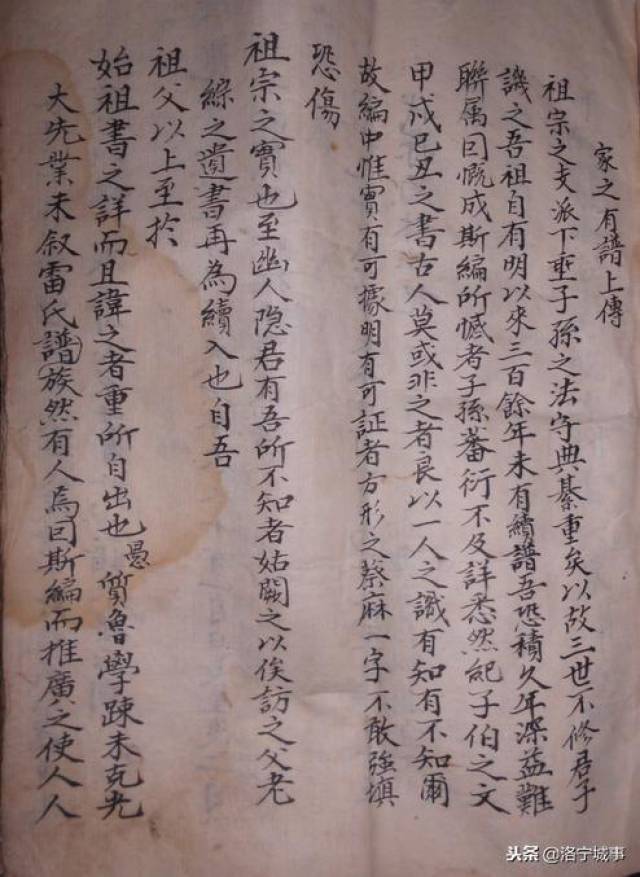 家之有譜上傳
祖宗之支派下垂子孫之法守典綦重矣以故三世不修君子
譏之吾祖自有明以來三百餘年未有續譜吾恐積久年深益難
聯属囙慨成斯編所憾者子孫蕃衍不及詳悉然紀子伯之文
甲戍巳丑之書古人莫或非之者良以一人之識有知有不知爾
故編中惟實有可據明有可証者方形之蔡麻一字不敢強填
恐傷
祖宗之實也至幽人隐君有吾所不知者姑闕之以俟訪之父老
綜之遺書再為續入也自吾
祖父以上至於
始祖書之詳而且諱之者重所自出也愚質魯學踈未克光
大先業未叙雷氏譜族然有人焉囙斯編而推廣之使人人
头条@洛宁城事